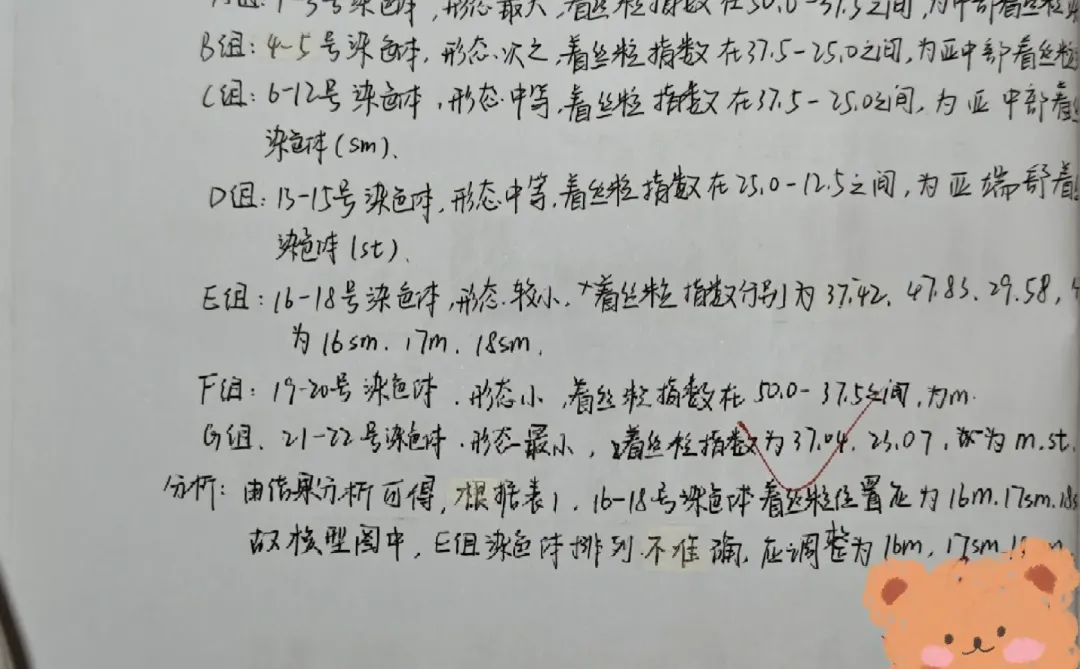 A组:1-3号染色体,形态最大,着丝粒指数在50.0-37.5之间,为中部着丝粒
B组:4-5号染色体,形态次之,着丝粒指数在37.5-25.0之间,为亚中部着丝粒
C组:6-12号染色体,形态中等,着丝粒指数在37.5-25.0之间,为亚中部着
染色体(sm)、
D组:13-15号染色体,形态中等,着丝粒指数在25.0-12.5之间,为亚端部着
染色体(st).
E组:16-18号染色体,形态较小,着丝粒指数分别为37.42,47.83,29.58,
为16sm.17m.18sm.
F组:19-20号染色体.形态小,着丝粒指数在50.0-37.5之间,为m.
G组.21-22号染色体.形态最小,着丝粒指数为37.04,23.07,为m.st.
分析:由结果分析可得,根据表1,16-18号染色体着丝粒位置应为16m.17sm.18s
故核型图中,E组染色体排列不准确,应调整为16m,17sm